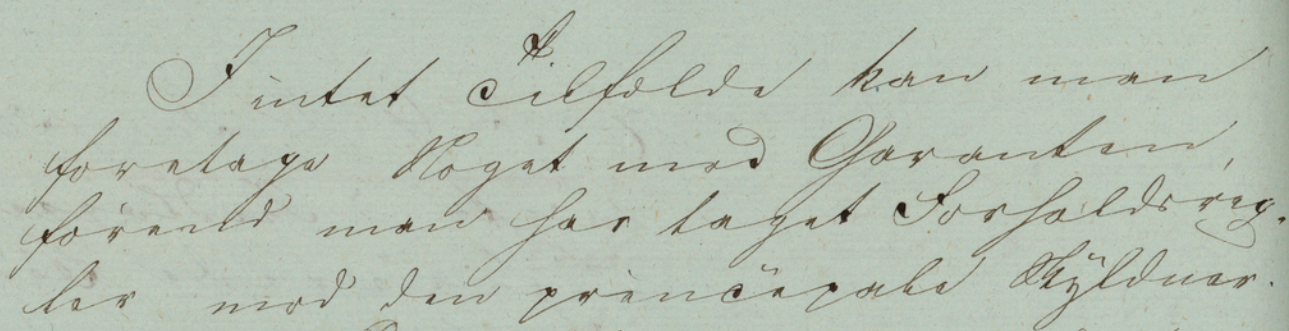 I intet Tilfælde kan man
foretage Noget mod Garanten,
førend man har taget Forholdsreg-
ler mod den principale Skyldner.